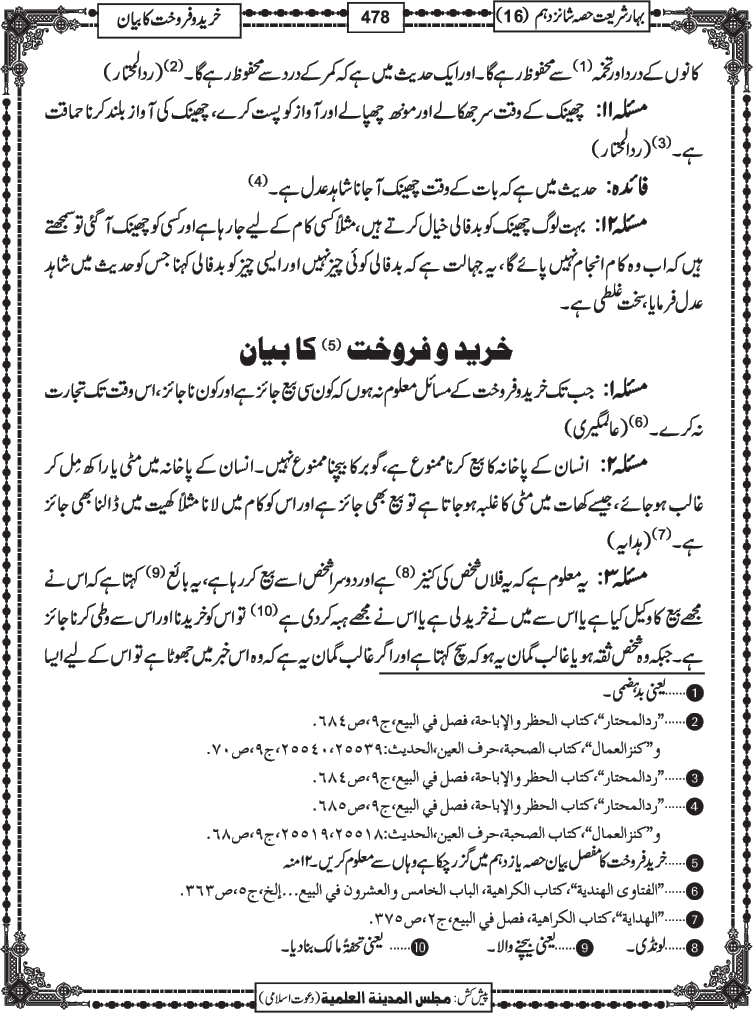 بہارشریعت حصہ شانزدہم (16)
478
خرید و فروخت کا بیان
کانوں کے درد اور تخمہ (1) سے محفوظ رہے گا۔ اور ایک حدیث میں ہے کہ کمر کے درد سے محفوظ رہے گا۔ (2) (ردالمحتار)
مسئلہ ۱۱: چھینک کے وقت سر جھکالے اور مونھ چھپالے اور آواز کو پست کرے، چھینک کی آواز بلند کرنا حماقت
ہے۔ (3) (ردالمحتار)
فائدہ: حدیث میں ہے کہ بات کے وقت چھینک آجانا شاہد عدل ہے۔ (4)
مسئلہ ۱۲: بہت لوگ چھینک کو بدفالی خیال کرتے ہیں، مثلاً کسی کام کے لیے جارہا ہے اور کسی کو چھینک آگئی تو سمجھتے
ہیں کہ اب وہ کام انجام نہیں پائے گا، یہ جہالت ہے کہ بدفالی کوئی چیز نہیں اور ایسی چیز کو بدفالی کہنا جس کو حدیث میں شاہد
عدل فرمایا، سخت غلطی ہے۔
خرید و فروخت (5) کا بیان
مسئلہ ۱: جب تک خرید و فروخت کے مسائل معلوم نہ ہوں کہ کون سی بیع جائز ہے اور کون ناجائز، اس وقت تک تجارت
نہ کرے۔ (6) (عالمگیری)
مسئلہ ۲: انسان کے پاخانہ کا بیع کرنا ممنوع ہے، گوبر کا بیچنا ممنوع نہیں۔ انسان کے پاخانہ میں مٹی یا راکھ مِل کر
غالب ہوجائے، جیسے کھات میں مٹی کا غلبہ ہوجاتا ہے تو بیع بھی جائز ہے اور اس کو کام میں لانا مثلاً کھیت میں ڈالنا بھی جائز
ہے۔ (7) (ہدایہ)
مسئلہ ۳: یہ معلوم ہے کہ یہ فلاں شخص کی کنیز (8) ہے اور دوسرا شخص اسے بیع کر رہا ہے، یہ بائع (9) کہتا ہے کہ اس نے
مجھے بیع کا وکیل کیا ہے یا اس سے میں نے خرید لی ہے یا اس نے مجھے ہبہ کر دی ہے (10) تو اس کو خریدنا اور اس سے وطی کرنا جائز
ہے۔ جبکہ وہ شخص ثقہ ہو یا غالب گمان یہ ہو کہ سچ کہتا ہے اور اگر غالب گمان یہ ہے کہ وہ اس خبر میں جھوٹا ہے تو اس کے لیے ایسا
1 ......یعنی بدہضمی۔
2 ......”ردالمحتار“، کتاب الحظر والإباحة، فصل في البيع، ج۹، ص ۶۸۴.
و”كنزالعمال“، كتاب الصحبة، حرف العين، الحديث: ۲۵۵۳۹، ۲۵۵۴۰، ج۹، ص ۷۰.
3 ......”ردالمحتار“، كتاب الحظر والإباحة، فصل في البيع، ج۹، ص ۶۸۴.
4 ......”ردالمحتار“، كتاب الحظر والإباحة، فصل في البيع، ج۹، ص ۶۸۵.
و”كنزالعمال“، كتاب الصحبة، حرف العين، الحديث: ۲۵۵۱۸، ۲۵۵۱۹، ج۹، ص ۶۸.
5 ......خرید فروخت کا مفصل بیان حصہ یازدہم میں گزر چکا ہے وہاں سے معلوم کریں۔ ۱۲ منہ
6 ......”الفتاوى الهندية“، كتاب الكراهية، الباب الخامس والعشرون في البيع...إلخ، ج۵، ص ۳۶۳.
7 ......”الهداية“، كتاب الكراهية، فصل في البيع، ج۲، ص ۳۷۵.
8 ......لونڈی۔ 9 ......یعنی بیچنے والا۔ 10 ......یعنی تحفۃً مالک بنادیا۔
پیش کش: مجلس المدینۃ العلمیۃ (دعوت اسلامی)